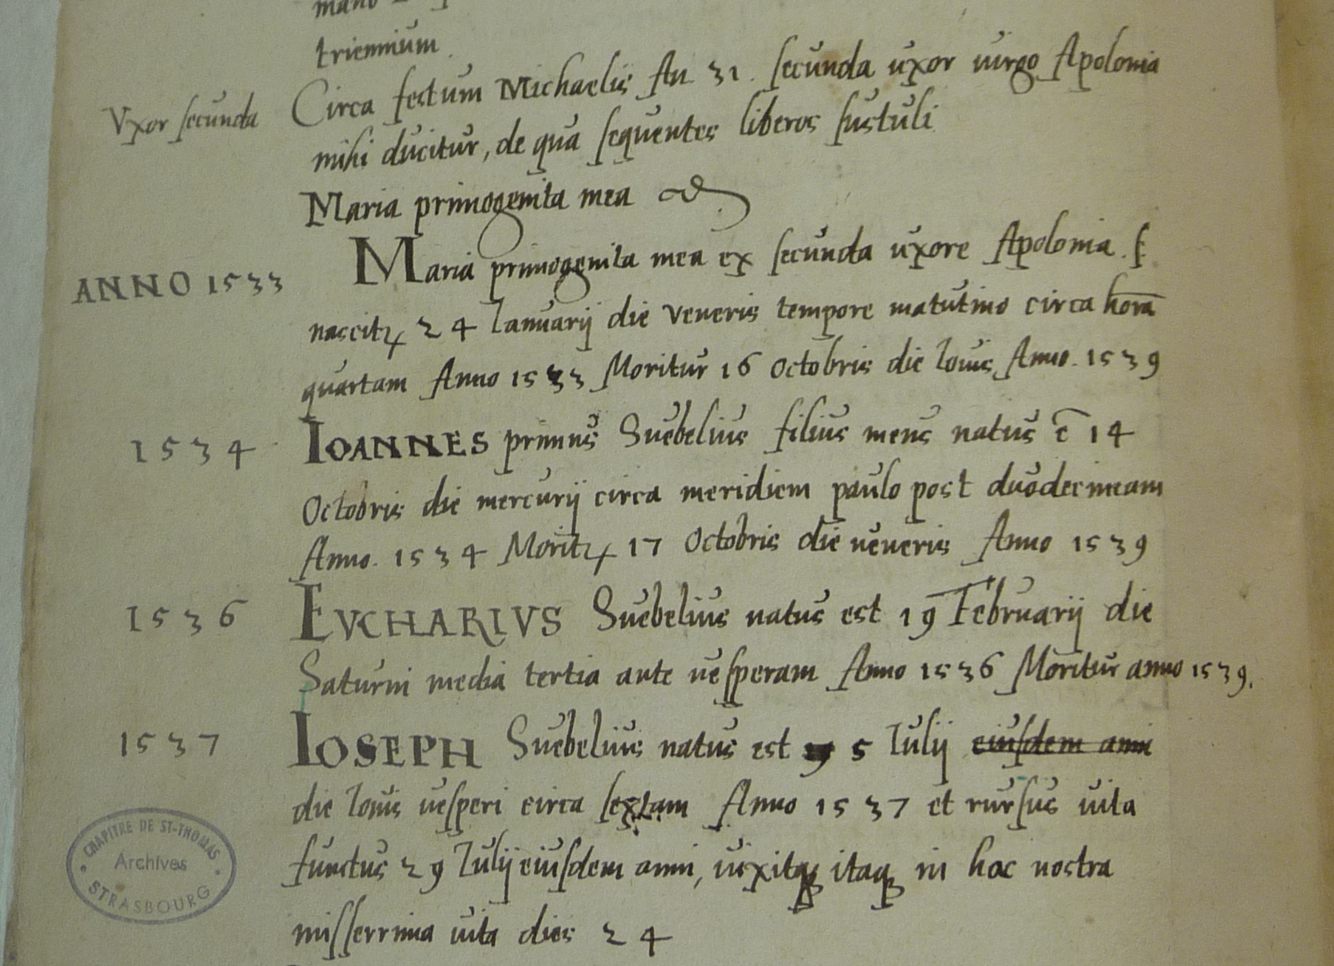 triennium.
Vxor secunda
Circa festum Michaelis An 31. secunda uxor virgo Apolonia
mihi ducitur, de qua sequentes liberos sustuli
Maria primogenita mea
ANNO 1533
Maria primogenita mea ex secunda uxore Apolonia.
nascitꝝ 24 Ianuarij die veneris tempore matutino circa horā
quartam Anno 1533 Moritur 16 Octobris die Iovis Anno. 1539
1534
IOANNES primus Suebelius filius meus natus ē 14
Octobris die mercurij circa meridiem paulo post duodecimam
Anno. 1534 Moritꝝ 17 Octobris die veneris Anno 1539
1536
EVCHARIVS Suebelius natus est 19 Februarij die
Saturni media tertia ante vesperam Anno 1536 Moritur anno 1539.
1537
IOSEPH Suebelius natus est 5 Iulij eiusdem anni
die Iovis vesperi circa sextam Anno 1537 et rursus vita
functus 29 Iulij eiusdem anni, vixitqꝫ itaqꝫ in hac nostra
misserrima vita dies 24
CHAPITRE DE ST-THOMAS
Archives
STRASBOURG